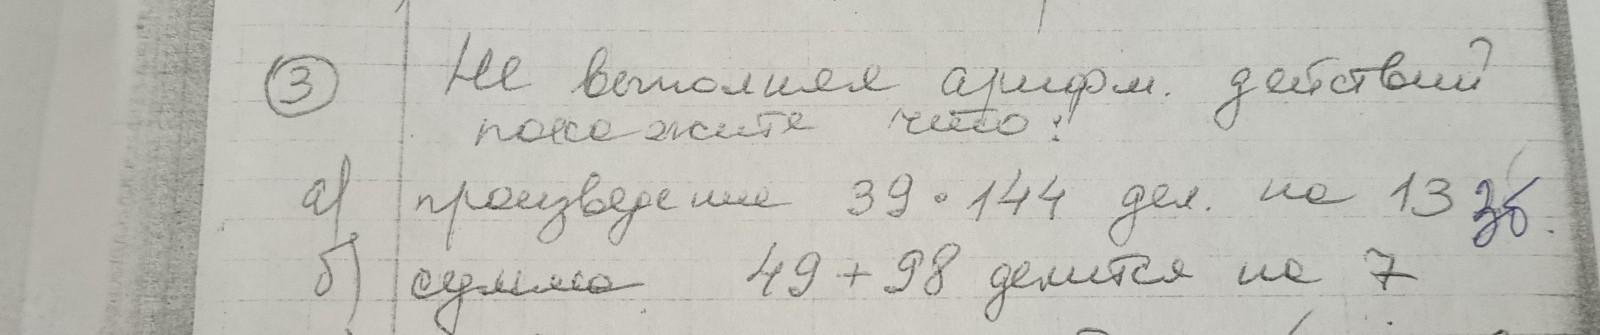 ③ Не выполняя арифм. действий
покажите что:
а) произведение 39 · 144 дел. на 13 3б.
б) сумма 49 + 98 делится на 7